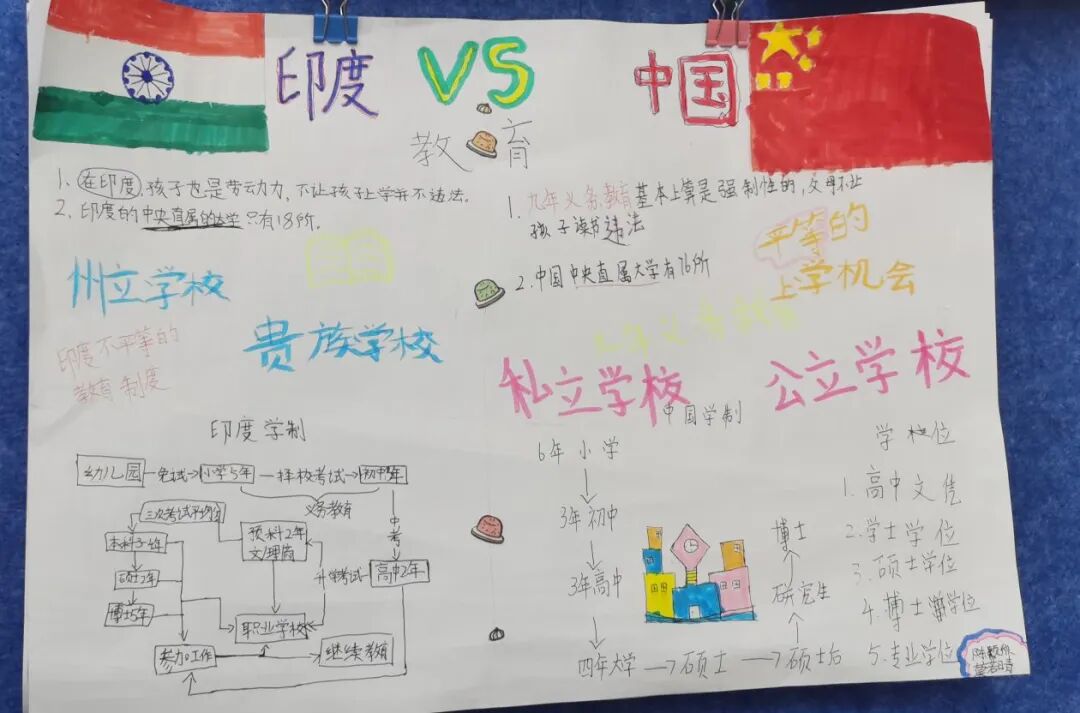 印度 VS 中国
教育
1. 在印度,孩子也是劳动力,不让孩子上学并不违法。
2. 印度的中央直属的大学只有18所。
州立学校
贵族学校
印度不平等的
教育制度
1. 九年义务教育基本上算是强制性的,父母不让
孩子读书违法
2. 中国中央直属大学有76所
平等的
上学机会
九年义务教育
私立学校
公立学校
印度学制
幼儿园 免试 小学5年 择校考试 初中5年
义务教育
中考
高中2年
升学考试
预科2年
文/理商
三次考试平均分
本科3-4年
硕士2年
博士5年
职业学校
参加工作
继续教育
中国学制
6年小学
3年初中
3年高中
四年大学 硕士 硕士后
研究生
博士
学校位
1. 高中文凭
2. 学士学位
3. 硕士学位
4. 博士学位
5. 专业学位